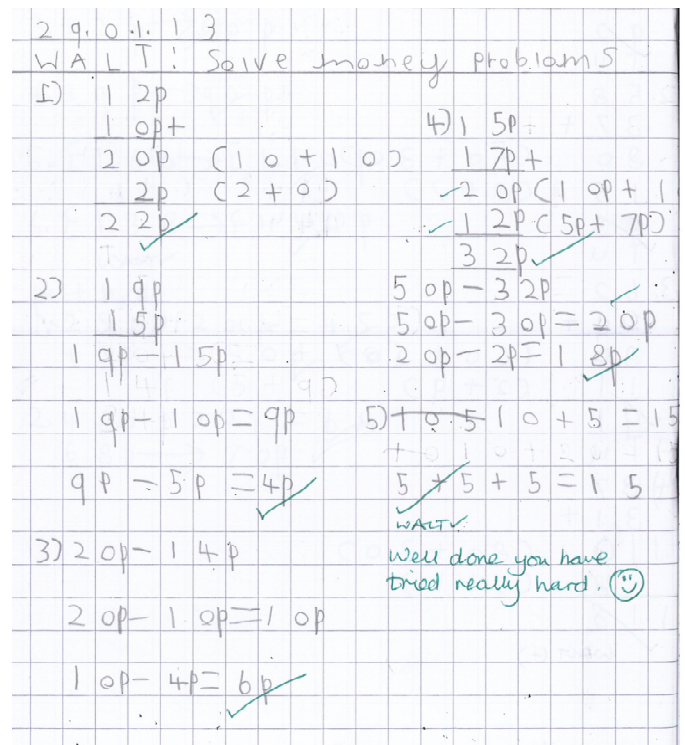 29.01.13
WALT: Solve money problams
1) 12p
10p+
20p (10+10)
2p (2+0)
22p
2) 19p
15p
19p-15p
19p-10p=9p
9p-5p=4p
3) 20p-14p
20p-10p=10p
10p-4p=6p
4) 15p
17p+
20p (10p+1
12p (5p+7p)
32p
50p-32p
50p-30p=20p
20p-2p=18p
5) 10+5=15
5+5+5=15
WALT✓
Well done you have
tried really hard.